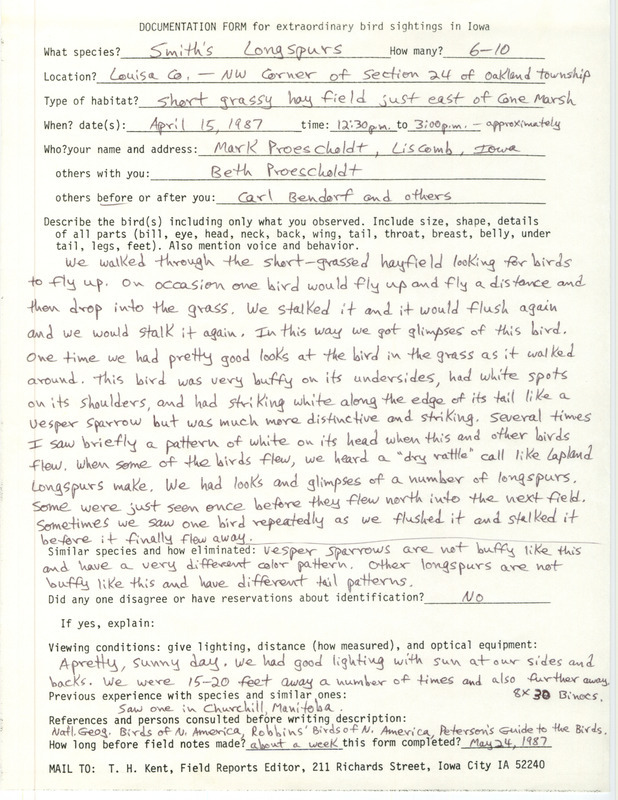 DOCUMENTATION FORM for extraordinary bird sightings in Iowa
What species? Smith's Longspurs How many? 6-10
Location? Louisa Co. - NW Corner of Section 24 of Oakland township
Type of habitat? short grassy hay field just east of Cone Marsh
When? date(s): April 15, 1987 time: 12:30 p.m. to 3:00 p.m. - approximately
Who?your name and address: Mark Proescholdt, Liscomb, Iowa
others with you: Beth Proescholdt
others before or after you: Carl Bendorf and others
Describe the bird(s) including only what you observed. Include size, shape, details
of all parts (bill, eye, head, neck, back, wing, tail, throat, breast, belly, under
tail, legs, feet). Also mention voice and behavior.
We walked through the short-grassed hayfield looking for birds
to fly up. On occasion one bird would fly up and fly a distance and
then drop into the grass. We stalked it and it would flush again
and we would stalk it again. In this way we got glimpses of this bird.
One time we had pretty good looks at the bird in the grass as it walked
around. This bird was very buffy on its undersides, had white spots
on its shoulders, and had striking white along the edge of its tail like a
Vesper Sparrow but was much more distinctive and striking. Several times
I saw briefly a pattern of white on its head when this and other birds
flew. When some of the birds flew, we heard a "dry rattle" call like Lapland
Longspurs make. We had looks and glimpses of a number of longspurs.
Some were just seen once before they flew north into the next field.
Sometimes we saw one bird repeatedly as we flushed it and stalked it
before it finally flew away.
Similar species and how eliminated: Vesper Sparrows are not buffy like this
and have a very different color pattern. Other longspurs are not
buffy like this and have different tail patterns.
Did any one disagree or have reservations about identification? No
If yes, explain:
Viewing conditions: give lighting, distance (how measured), and optical equipment:
A pretty, sunny day. We had good lighting with sun at our sides and
backs. We were 15-20 feet away a number of times and also further away.
Previous experience with species and similar ones: 8x30 Binocs.
Saw one in Churchill, Manitoba.
References and persons consulted before writing description:
Natl. Geog. Birds of N. America, Robbins' Birds of N. America, Peterson's Guide to the Birds.
How long before field notes made? about a week this form completed? May 24, 1987
MAIL TO: T. H. Kent, Field Reports Editor, 211 Richards Street, Iowa City IA 52240